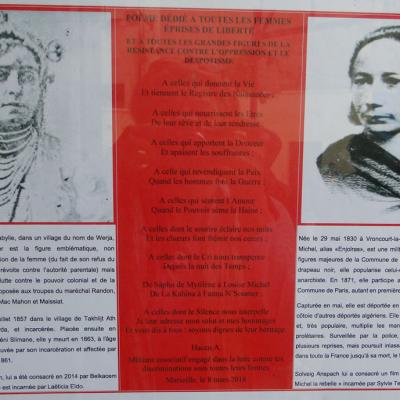 POÈME DÉDIÉ A TOUTES LES FEMMES
ÉPRISES DE LIBERTÉ
ET A TOUTES LES GRANDES FIGURES DE LA
RÉSISTANCE CONTRE L'OPPRESSION ET LE
DESPOTISME
A celles qui donnent la Vie
Et tiennent le Registre des Naissances ;
A celles qui nourrissent les Etres
De leur rêve et de leur tendresse ;
A celles qui apportent la Douceur
Et apaisent les souffrances ;
A celle qui revendiquent la Paix
Quand les hommes font la Guerre ;
A celles qui sèment l'Amour
Quand le Pouvoir sème la Haine ;
A celles dont le sourire éclaire nos nuits
Et les chœurs font frémir nos cœurs ;
A celles dont le Cri nous transperce
Depuis la nuit des Temps ;
De Sapho de Mytilène à Louise Michel
De La Kahina à Fatma N'Soumer ;
A celles dont le Silence nous interpelle
Je leur adresse mon salut et mes hommages
Et vous dis à tous : soyons dignes de leur héritage.
Hacen A.
Militant associatif engagé dans la lutte contre les
discriminations sous toutes leurs formes
Marseille, le 8 mars 2018
abylie, dans un village du nom de Werja,
er est la figure emblématique, non
tion de la femme (du fait de son refus du
révolte contre l'autorité parentale) mais
lutte contre le pouvoir colonial et de la
opposée aux troupes du maréchal Randon,
Mac Mahon et Maissiat.
uillet 1857 dans le village de Takhlijt Ath
rda, et incarcérée. Placée ensuite en
éni Slimane, elle y meurt en 1863, à l'âge
uvée par son incarcération et affectée par
861.
n, lui a été consacré en 2014 par Belkacem
e est incarnée par Laëticia Eïdo.
Née le 29 mai 1830 à Vroncourt-la-
Michel, alias «Enjolras», est une milit
figures majeures de la Commune de
drapeau noir, elle popularise celui-
anarchie. En 1871, elle participe a
Commune de Paris, autant en première
Capturée en mai, elle est déportée en
côtoie d'autres déportés algériens. Elle
et, très populaire, multiplie les man
prolétaires. Surveillée par la police,
plusieurs reprises, mais poursuit inlass
dans toute la France jusqu'à sa mort, le
Solveig Anspach lui a consacré un film
Michel la rebelle » incarnée par Sylvie Te